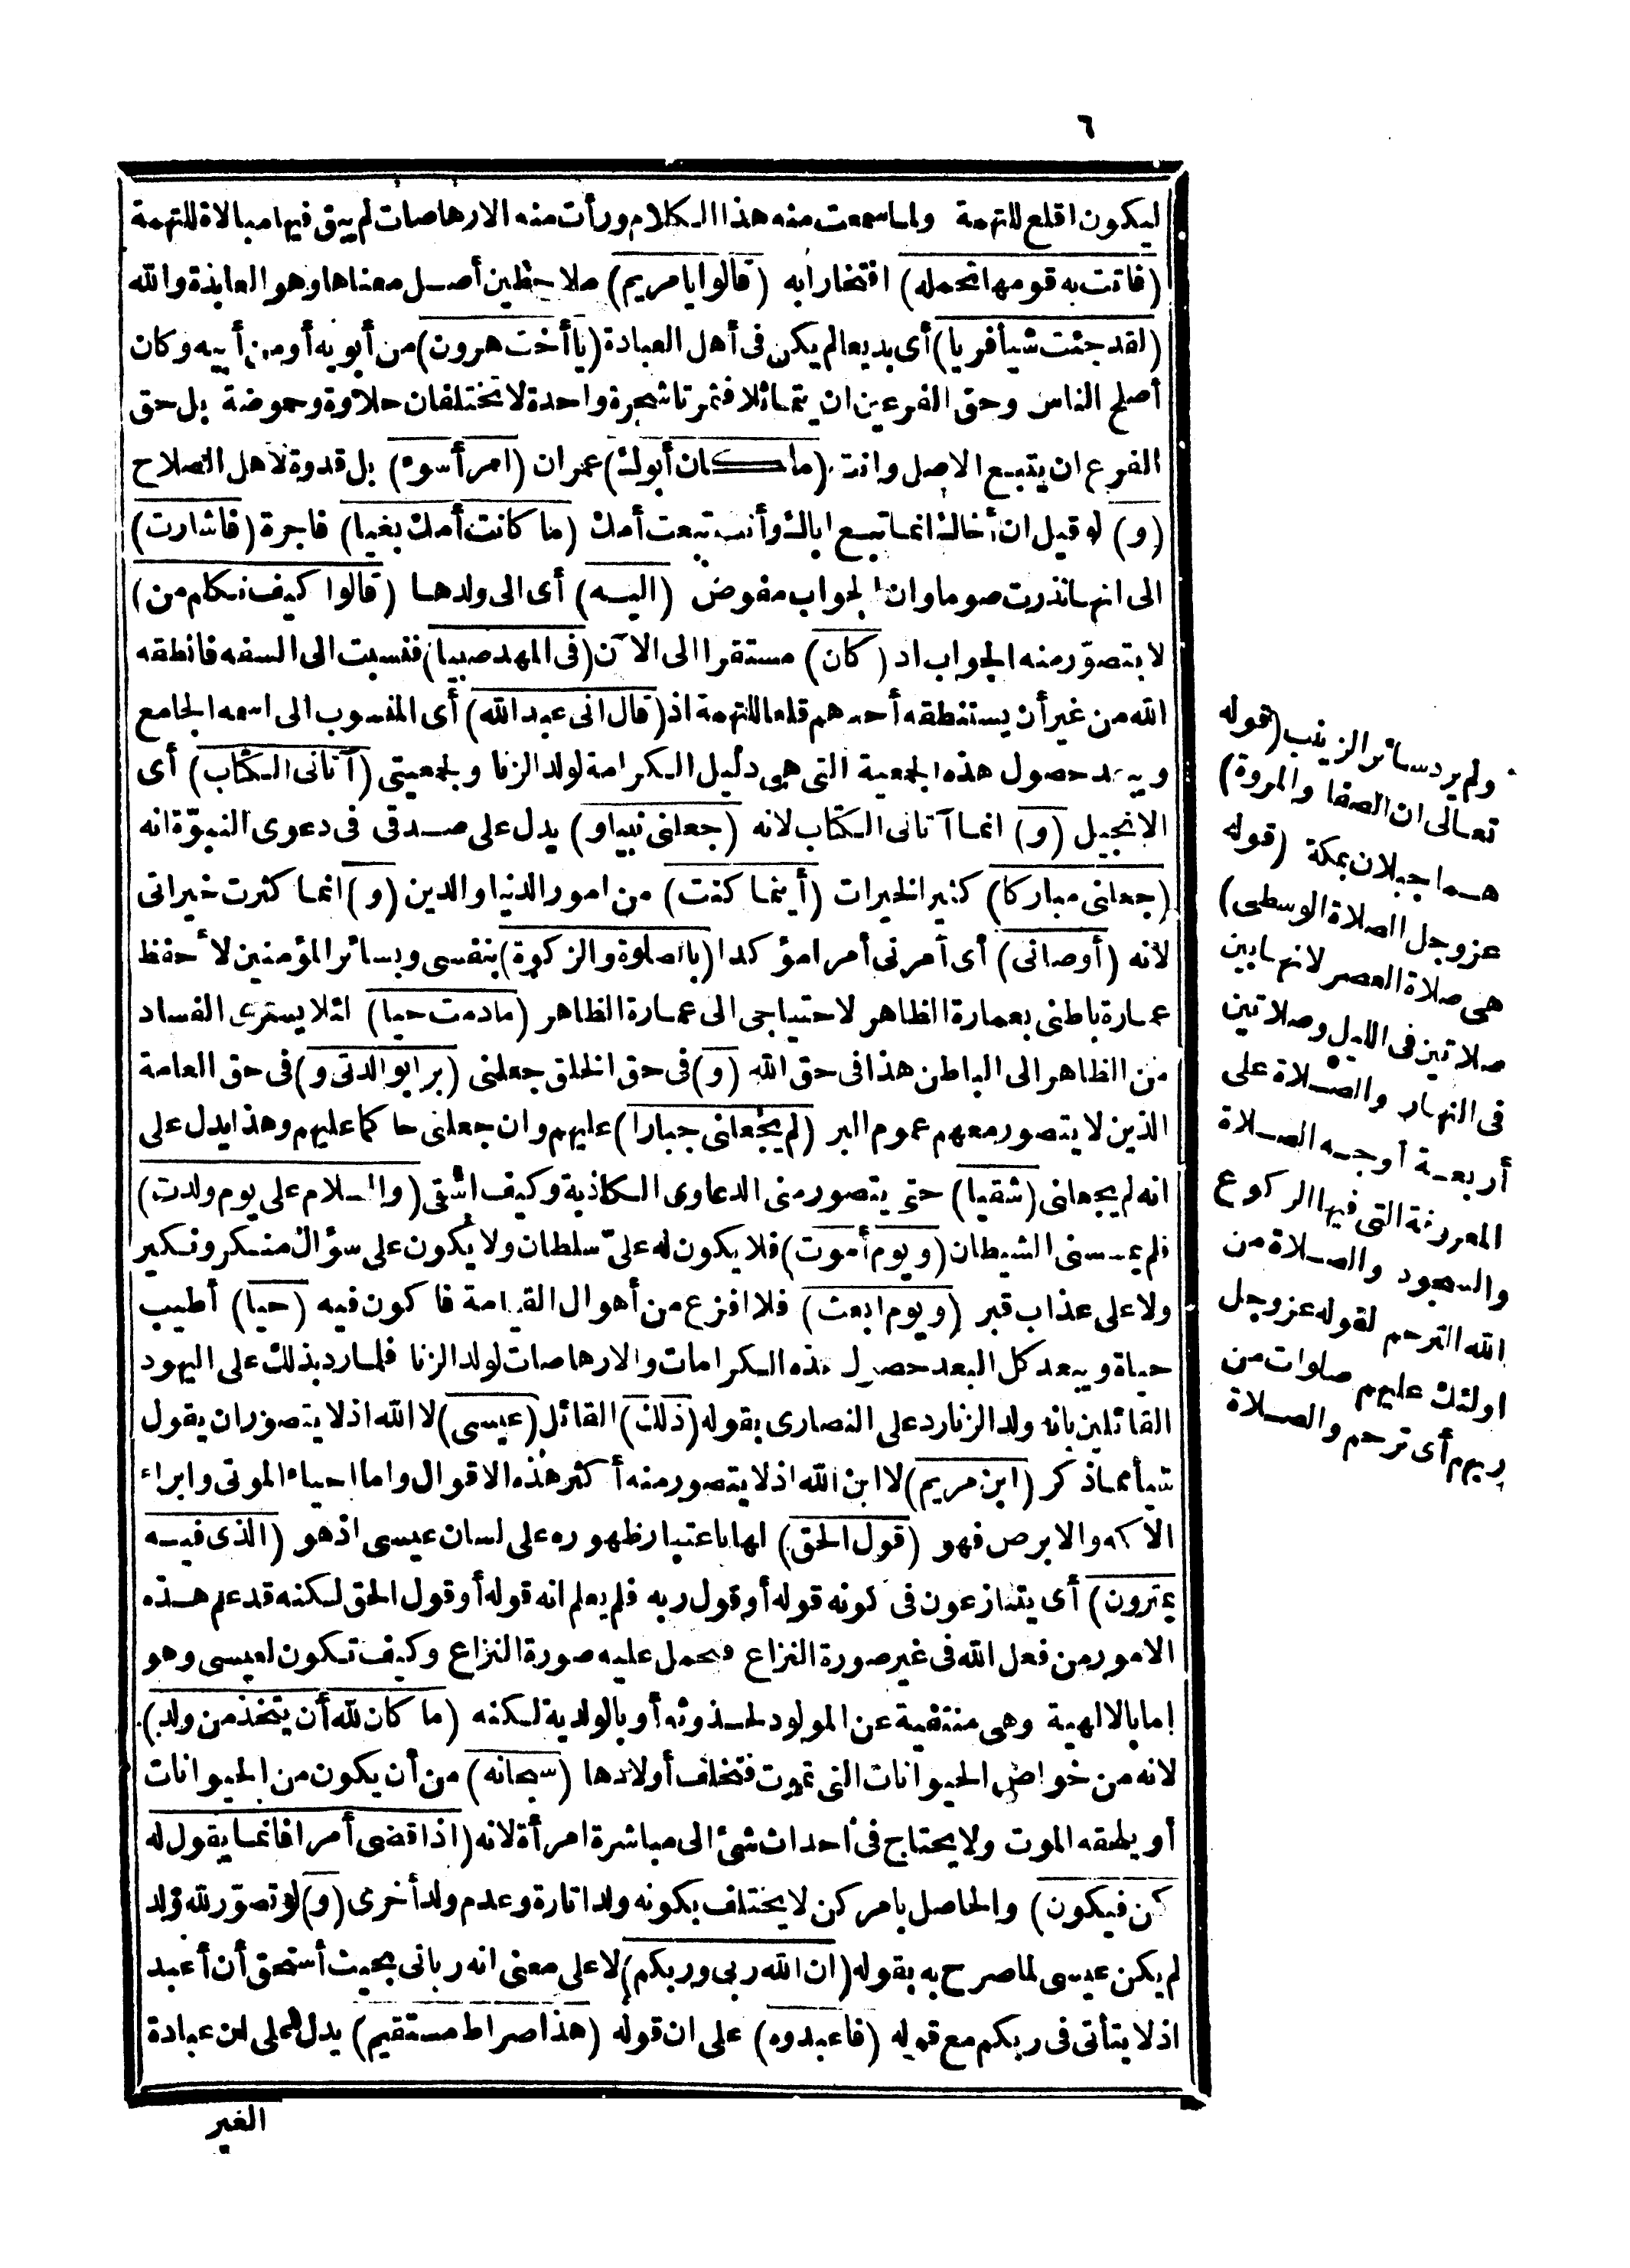 ٦
ليكون اقلع للتهمة ولما سمعت منه هذا الكلام ورأت منه الارهاصات لم يبق فيها مبالاة للتهمة
(فاتت به قومها تحمله) افتخارا به (قالوا يا مريم) ملاحظين أصل معناها وهو العابدة والله
(لقد جئت شيأ فريا) أى بديعا لم يكن فى أهل العبادة (يا أخت هرون) من أبويه أو من أبيه وكان
أصلح الناس وحق الفرعين ان يتماثلا فثمرتا شجرة واحدة لا تختلفان حلاوة وحموضة بل حق
الفرع ان يتبع الاصل وانت (ما كان أبوك) عمران (امرأ سوء) بل قدوة لاهل الصلاح
(و) لو قيل ان أخاك انما تبع اباك وأنت تبعت أمك (ما كانت أمك بغيا) فاجرة (فاشارت)
الى انها نذرت صوما وان الجواب مفوض (اليه) أى الى ولدها (قالوا كيف نكلم من)
لا يتصوّر منه الجواب اذ (كان) مستقرا الى الآن (فى المهد صبيا) فنسبت الى السفه فانطقه
الله من غير أن يستنطقه أحدهم قلعا للتهمة اذ (قال انى عبد الله) أى المنسوب الى اسمه الجامع
ويبعد حصول هذه الجمعية التى هى دليل الكرامة لولد الزنا ولجمعيتى (آتانى الكتاب) أى
الانجيل (و) انما آتانى الكتاب لانه (جعلنى نبيا و) يدل على صدقى فى دعوى النبوّة انه
(جعلنى مباركا) كثير الخيرات (أينما كنت) من امور الدنيا والدين (و) انما كثرت خيراتى
لانه (أوصانى) أى أمرنى أمرا مؤكدا (بالصلوة والزكوة) بنفسى وبسائر المؤمنين لأحفظ
عمارة باطنى بعمارة الظاهر لاحتياجى الى عمارة الظاهر (مادمت حيا) لئلا يسترى الفساد
من الظاهر الى الباطن هذا فى حق الله (و) فى حق الخلق جعلنى (برا بوالدتى و) فى حق العامة
الذين لا يتصور معهم عموم البر (لم يجعلنى جبارا) عليهم وان جعلنى حاكما عليهم وهذا يدل على
انه لم يجعلنى (شقيا) حتى يتصور منى الدعاوى الكاذبة وكيف اشقى (والسلام على يوم ولدت)
فلم يمسسنى الشيطان (ويوم أموت) فلا يكون له علىّ سلطان ولا يكون على سؤال منكر ونكير
ولا على عذاب قبر (ويوم ابعث) فلا افزع من أهوال القيامة فاكون فيه (حيا) أطيب
حياة ويبعد كل البعد حصول هذه الكرامات والارهاصات لولد الزنا فلما رد بذلك على اليهود
القائلين بانه ولد الزنا رد على النصارى بقوله (ذلك) القائل (عيسى) لا الله اذ لا يتصور ان يقول
شيأ مما ذكر (ابن مريم) لا ابن الله اذ لا يتصور منه أكثر هذه الاقوال واما احياء الموتى وابراء
الاكمه والابرص فهو (قول الحق) لها باعتبار ظهوره على لسان عيسى اذ هو (الذى فيه
يمترون) أى يتنازعون فى كونه قوله أو قول ربه فلم يعلم انه قوله أو قول الحق لكنه قد علم هذه
الامور من فعل الله فى غير صورة النزاع فحمل عليه صورة النزاع وكيف تكون لعيسى وهو
اما بالالهية وهى منتفية عن المولود لحدوثه أو بالولدية لكنه (ما كان لله أن يتخذ من ولد)
لانه من خواص الحيوانات التى تموت فتخلف أولادها (سبحانه) من أن يكون من الحيوانات
أو يلحقه الموت ولا يحتاج فى احداث شئ الى مباشرة امرأة لانه (اذا قضى أمرا فانما يقول له
كن فيكون) والحاصل بامر كن لا يختلف بكونه ولدا تارة وعدم ولد أخرى (و) لو تصوّر لله ولد
لم يكن عيسى لما صرح به بقوله (ان الله ربى وربكم) لا على معنى انه ربانى بحيث أستحق أن أعبد
اذ لا يتأتى فى ربكم مع قوله (فاعبدوه) على ان قوله (هذا صراط مستقيم) يدل على ان عبادة
الغير
ولم يرد سائر الزينب (قوله
تعالى ان الصفا والمروة)
هما جبلان بمكة (قوله
عز وجل الصلاة الوسطى)
هى صلاة العصر لانها بين
صلاتين فى الليل وصلاتين
فى النهار والصلاة على
أربعة أوجه الصلاة
المعروفة التى فيها الركوع
والسجود والصلاة من
الله الترحم لقوله عز وجل
اولئك عليهم صلوات من
ربهم أى ترحم والصلاة